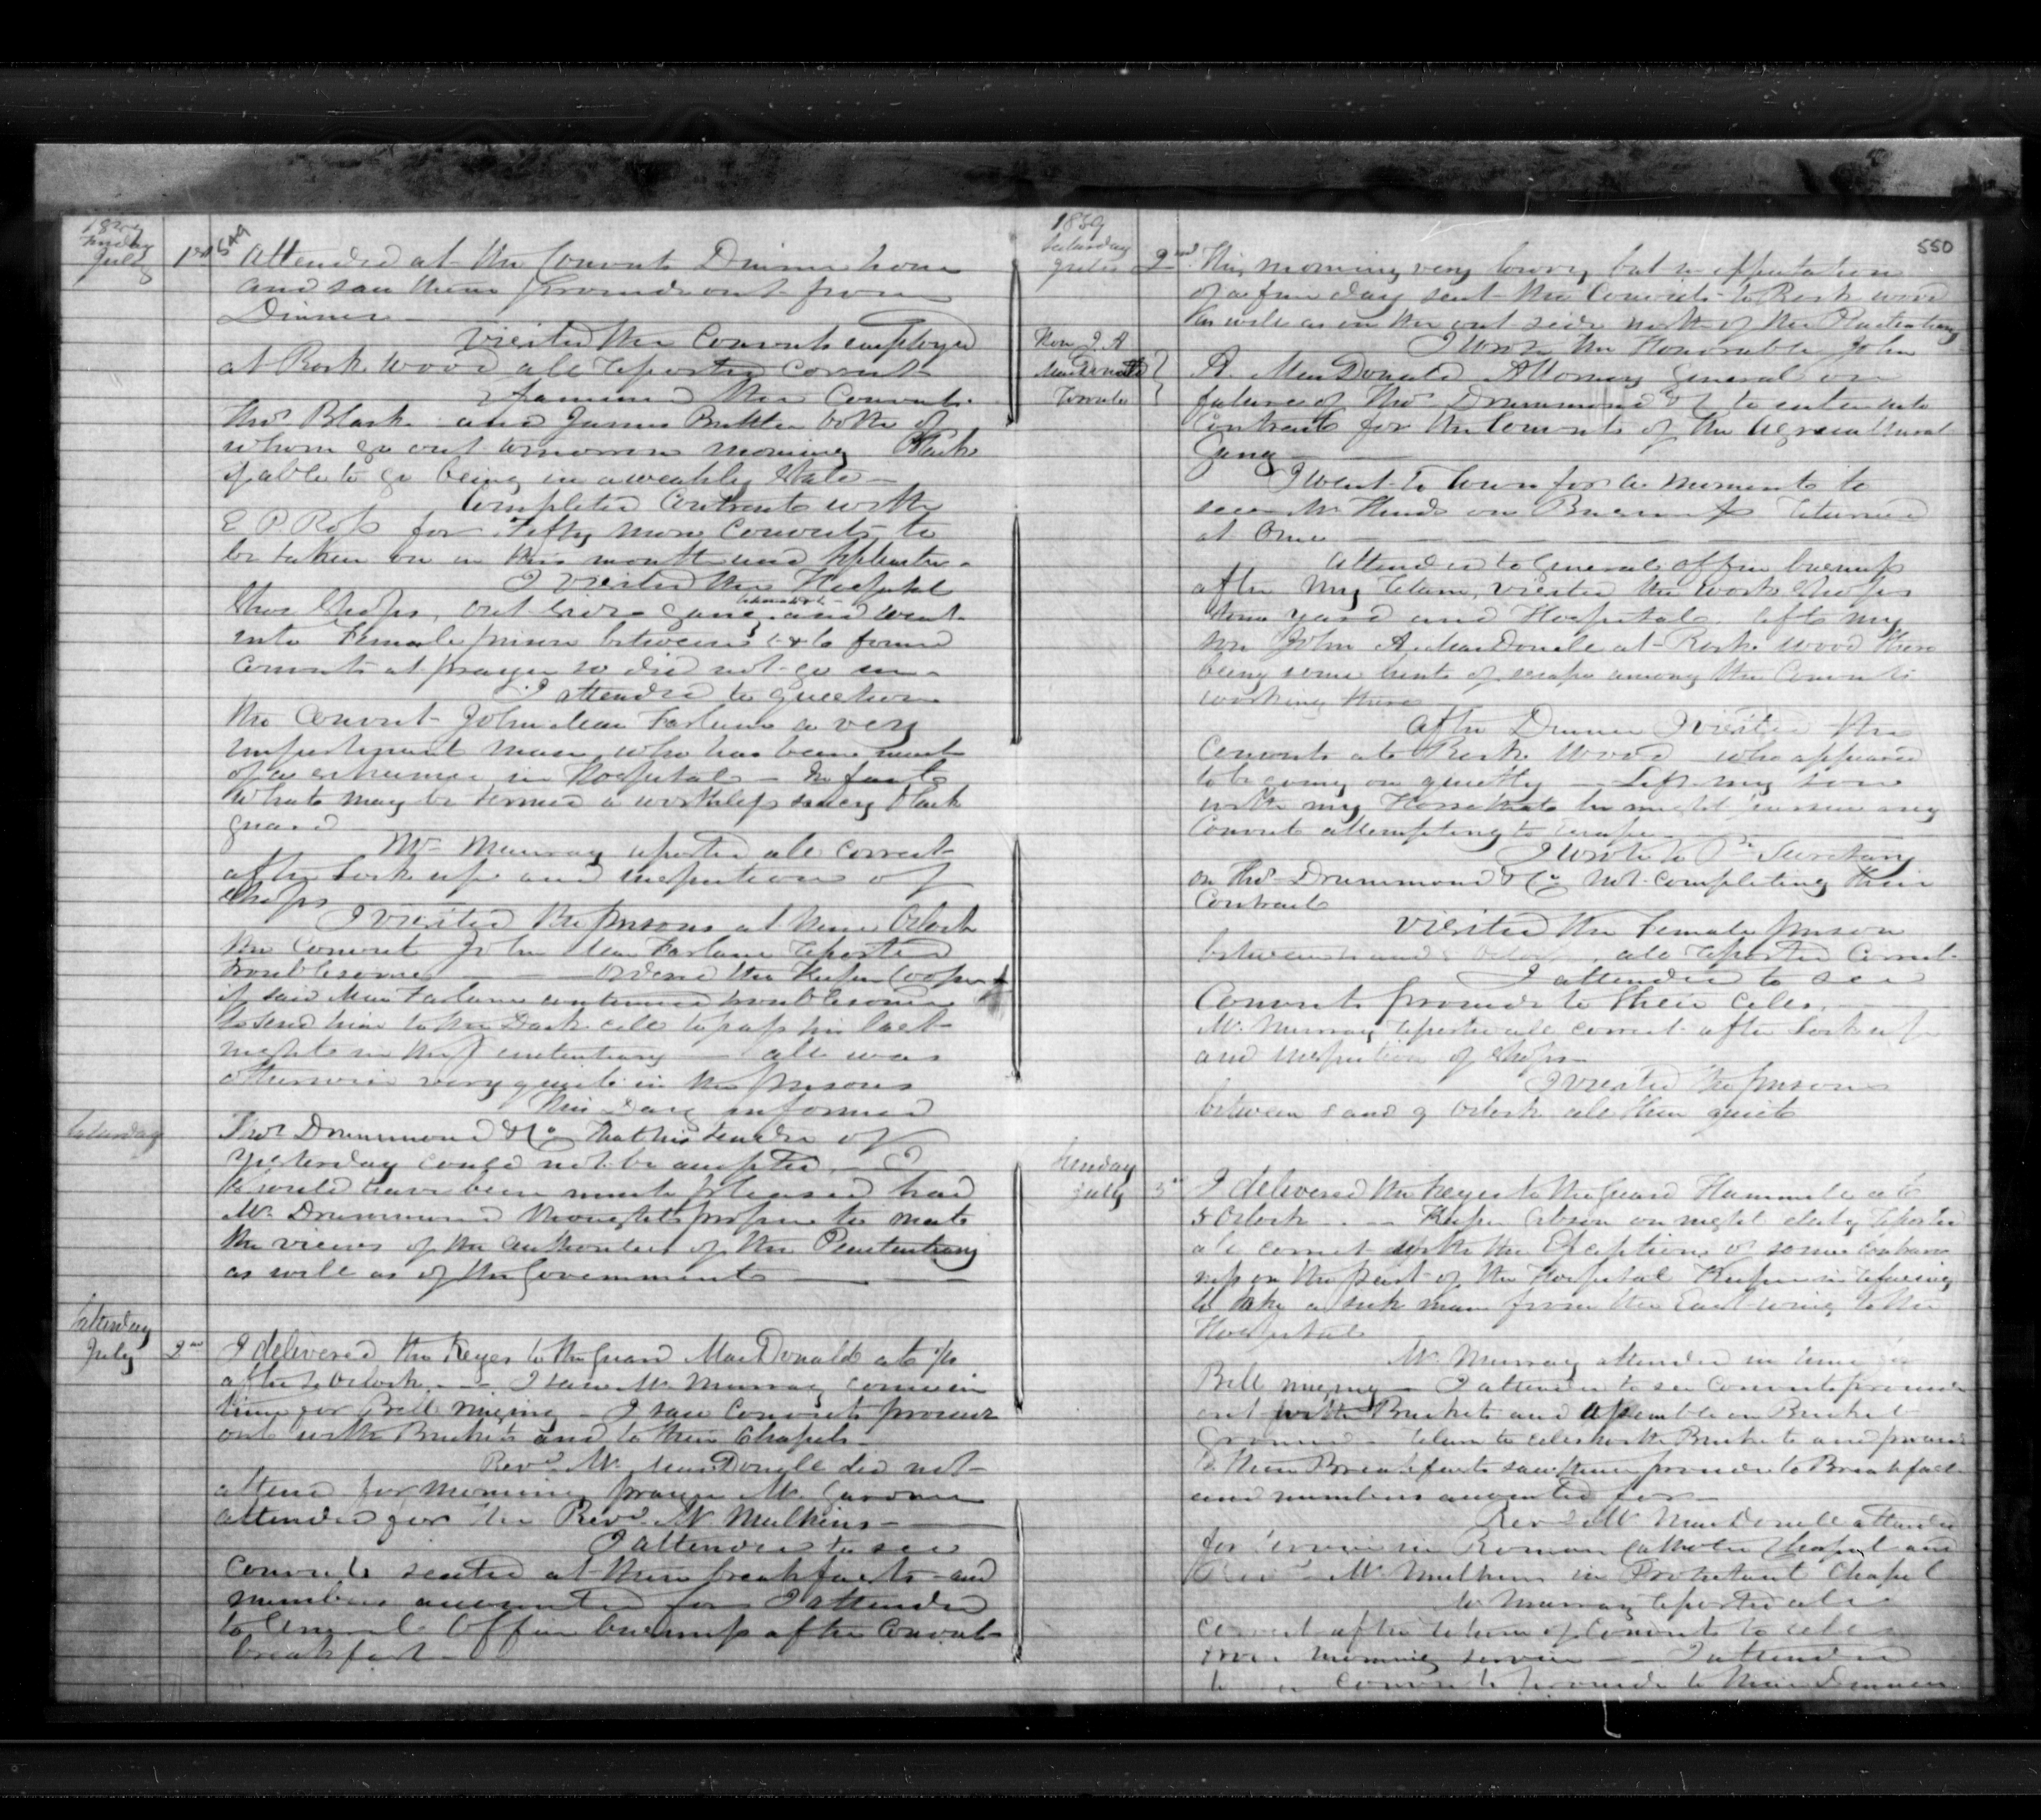 1859
Friday
July
1st
549
Attended at the Convicts Dinner hour
and saw them proceed out from
Dinner
Visited the Convicts employed
at Rock wood all reported correct
Examined the Convicts
Thos Black and James Butler both of
whom go out tomorrow morning Black
if able to go being in a weakly state
Completed Contracts with
E P Ross for Fifty more Convicts to
be taken on in this month and September
I visited the Hospital
Shoe Shops, out side gang and went
into Female prison between 5 & 6 found
Convicts at prayer so did not go in
I attended to question
the Convict John MacFarlane a very
impertinent man, who has been
of a in Hospital In fact
what may be termed a worthless saucy black
guard
Mr Murray reported all correct
after Lock up and inspection of
Shops
I visited the prisons at nine Oclock
the Convict John MacFarlane reported
troublesome ordered the Keeper Cooper
if said MacFarlane continued troublesome
to send him to the Dark cell to pass his last
night in the Penitentiary all was
otherwise very quiet in the prisons
Saturday
This Day informed
Thos Drummond & Co that his tender of
yesterday could not be accepted
I would have been much pleased had
Mr Drummond thought proper to meet
the views of the authorities of the Penitentiary
as well as of the Government
Saturday
July
2nd
I delivered the Keys to the Guard MacDonald at
after 5 Oclock I saw Mr Murray come in
time for Bell ringing I saw Convicts proceed
out with Buckets and to their Chapels
Revd Mr MacDonell did not
attend for morning prayer Mr Gardner
attended for the Revd Mr Mulkins
I attended to see
Convicts seated at their breakfasts and
numbers accounted for I attended
to General Office business after Convicts
breakfast
1859
Saturday
July
2nd
550
This morning very lowry but in expectation
of a fine day sent the Convicts to Rock wood
as well as on the out side work of the Penitentiary
Hon J. A
MacDonald
Toronto
I wrote the Honorable John
A. MacDonald Attorney General on
failure of Thos Drummond & Co to enter into
Contract for the Convicts of the Agricultural
Gang
I went to Town for a moment to
see Mr Hinds on Business returned
at Once
Attended to General office business
after my return, visited the work Shops
Stone yard and Hospital. left my
son John A. MacDonell at Rock wood there
being some hints of escape among the Convicts
working there
After Dinner I visited the
Convicts at Rock Wood who appeared
to be going on quietly Left my son
with my Horse that he might pursue any
Convict attempting to escape
I wrote to Pr Secretary
on Thos Drummond & Co not completing their
Contract
Visited the Female prison
between and Oclock, all reported Correct
I attended to see
Convicts proceed to their cells
Mr Murray reported all correct after Lock up
and inspection of Shops
I visited the prisons
between 8 and 9 Oclock all then quiet
Sunday
July
3rd
I delivered the keys to the Guard Hammill at
5 Oclock Keeper Gibson on night duty reported
all correct with the Exception of some
on the part of the Hospital Keeper in refusing
to take a sick man from the East wing to the
Hospital
Mr Murray attended in time for
Bell ringing I attended to see Convicts proceed
out with Buckets and assemble on Bucket
Ground return to cells with Buckets and proceed
to their Breakfasts saw them proceed to Breakfast
and numbers accounted for
Revd Mr MacDonell attended
for Service in Roman Catholic Chapel and
Revd Mr Mulkins in Protestant Chapel
Mr Murray reported all
Correct after return of Convicts to cells
from morning service I attended
to see Convicts proceed to their Dinners